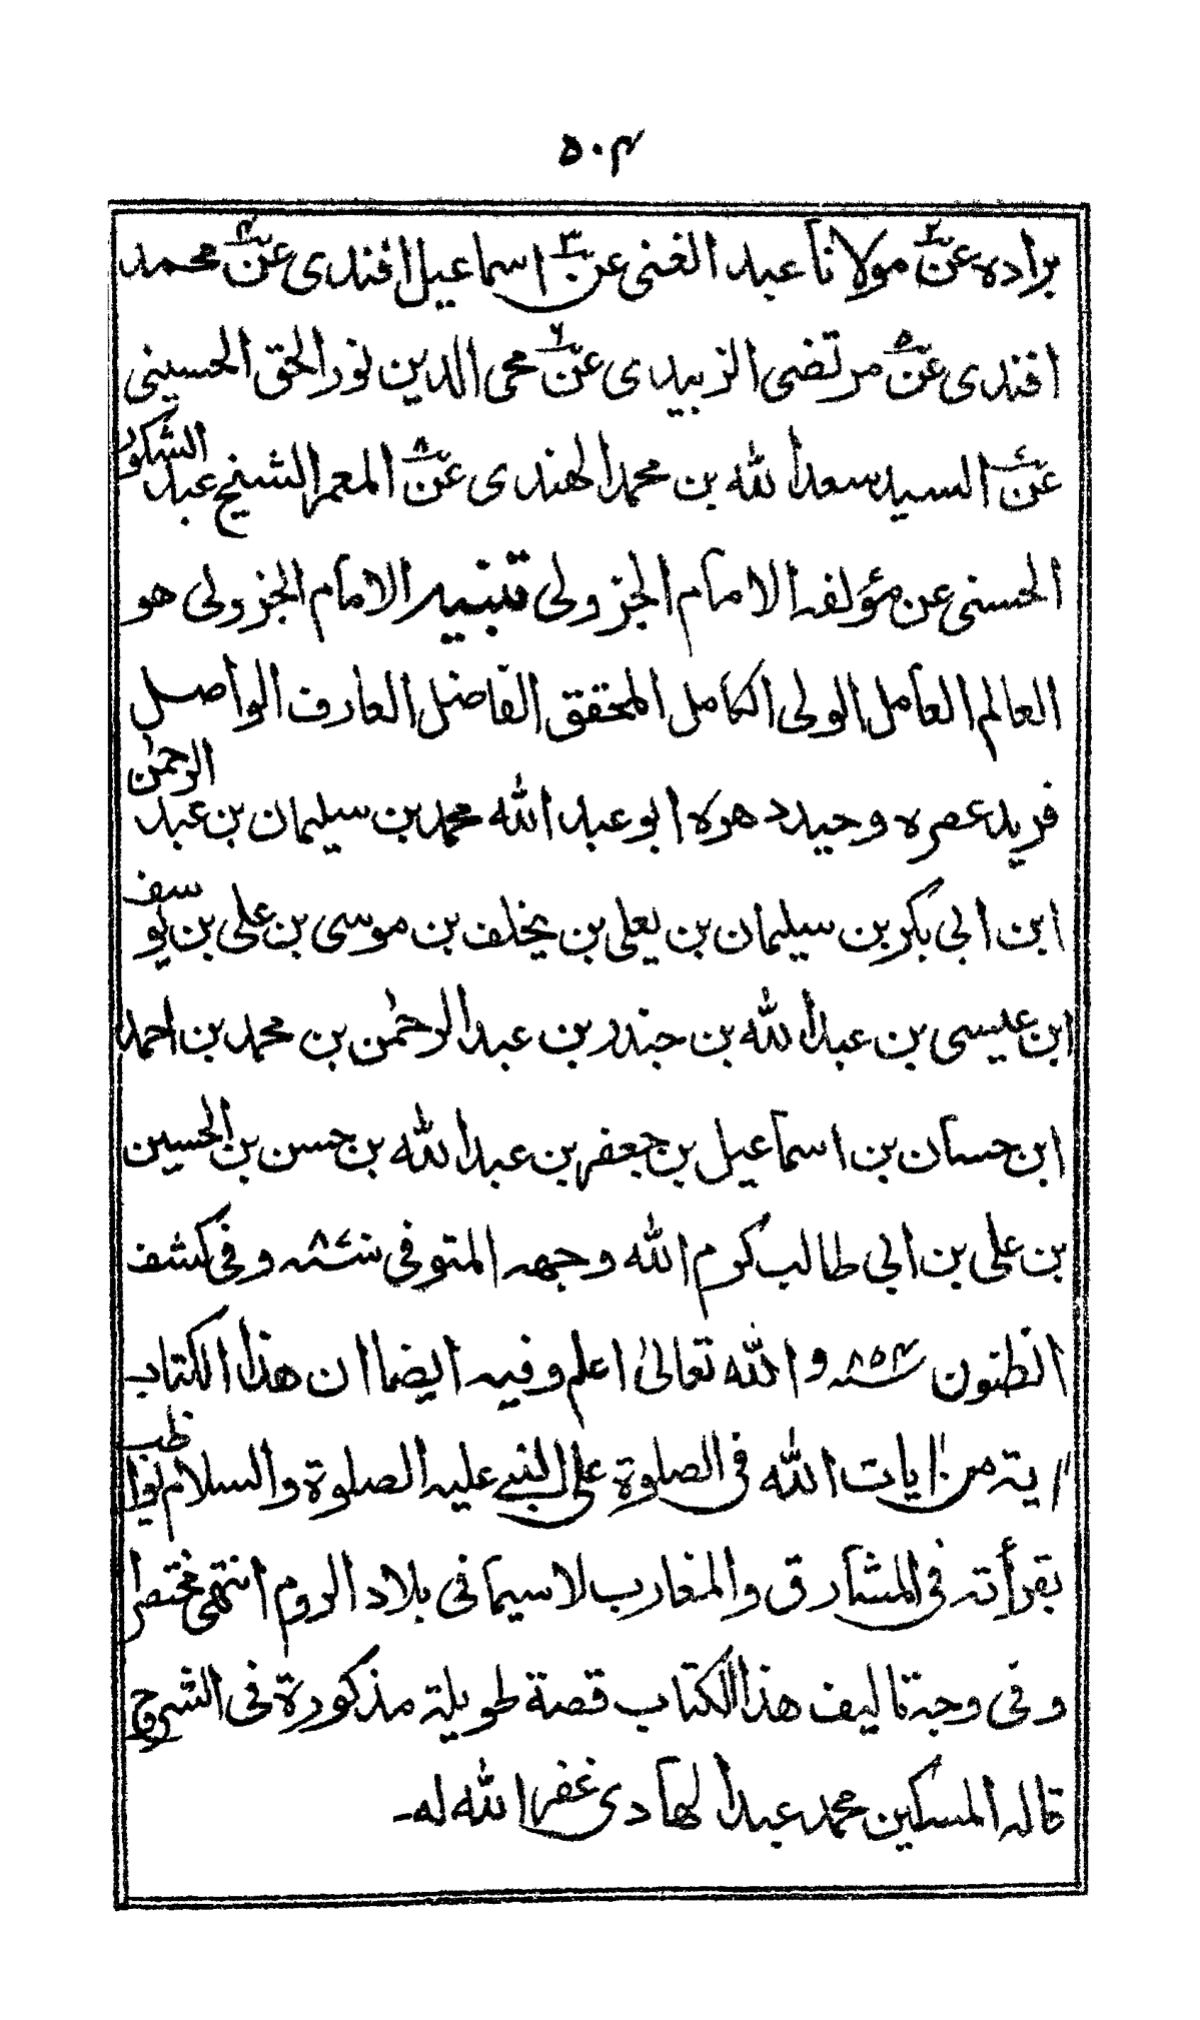 ٥٠٤
براده عن٢ مولانا عبد الغنى عن٣ اسماعيل افندى عن٤ محمد
افندى عن٥ مرتضى الزبيدى عن٦ محى الدين نور الحق الحسينى
عن٧ السيد سعد الله بن محمد الهندى عن٨ المعمر الشيخ عبد الشكور
الحسنى عن مؤلفه الامام الجزولى تنبيه الامام الجزولى هو
العالم العامل الولى الكامل المحقق الفاضل العارف الواصل
فريد عصره وحيد دهره ابو عبد الله محمد بن سليمان بن عبد الرحمٰن
ابن ابى بكر بن سليمان بن يعلى بن يخلف بن موسى بن على بن يوسف
ابن عيسى بن عبد الله بن جندر بن عبد الرحمٰن بن محمد بن احمد
ابن حسان بن اسماعيل بن جعفر بن عبد الله بن حسن بن الحسين
بن على بن ابى طالب كرم الله وجهه المتوفى سنه ٨٧٠ وفى كشف
الظنون سنه ٨٥٤ والله تعالىٰ اعلم وفيه ايضا ان هذا الكتاب
اٰية من اٰيات الله فى الصلوة على النبى عليه الصلوة والسلام يواظب
بقرأته فى المشارق والمغارب لا سيما فى بلاد الروم انتهى مختصرا
وفى وجه تاليف هذا الكتاب قصة طويلة مذكورة فى الشروح
قاله المسكين محمد عبد الهادى غفر الله له ـ